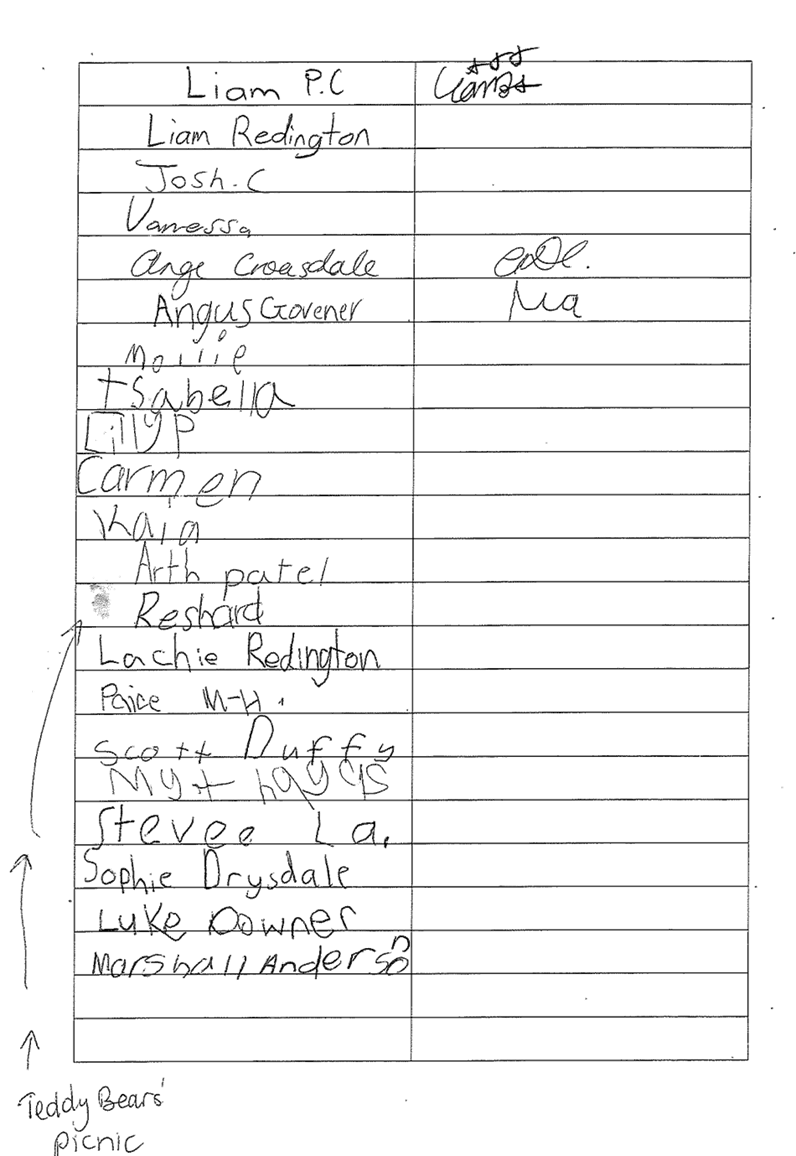 Liam P.C
Liam Redington
Josh.C
Vanessa
Ange Croasdale
Angus Govener
Mollie
Isabella
Lilly P
Carmen
Kaia
Arth patel
Reshard
Lachie Redington
Paice M-H.
Scott Duffy
Stevee La.
Sophie Drysdale
Luke Downer
Marshall Anderson
Teddy Bears'
picnic